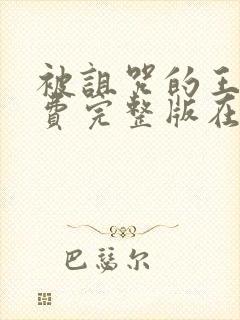 被诅咒的王
费完整版在
巴瑟尔